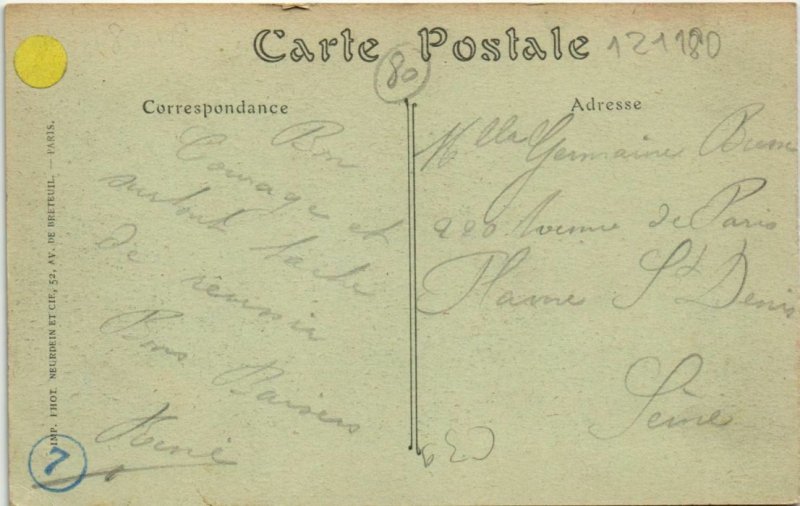 Carte Postale
121180
80
Correspondance
Bon
Courage et
surtout tache
de réussir
Bons Baisers
René
Adresse
Mlle Germaine
220 Avenue de Paris
Plaine St Denis
Seine
IMP. PHOT. NEURDEIN ET CIE, 52, AV. DE BRETEUIL. — PARIS.
7